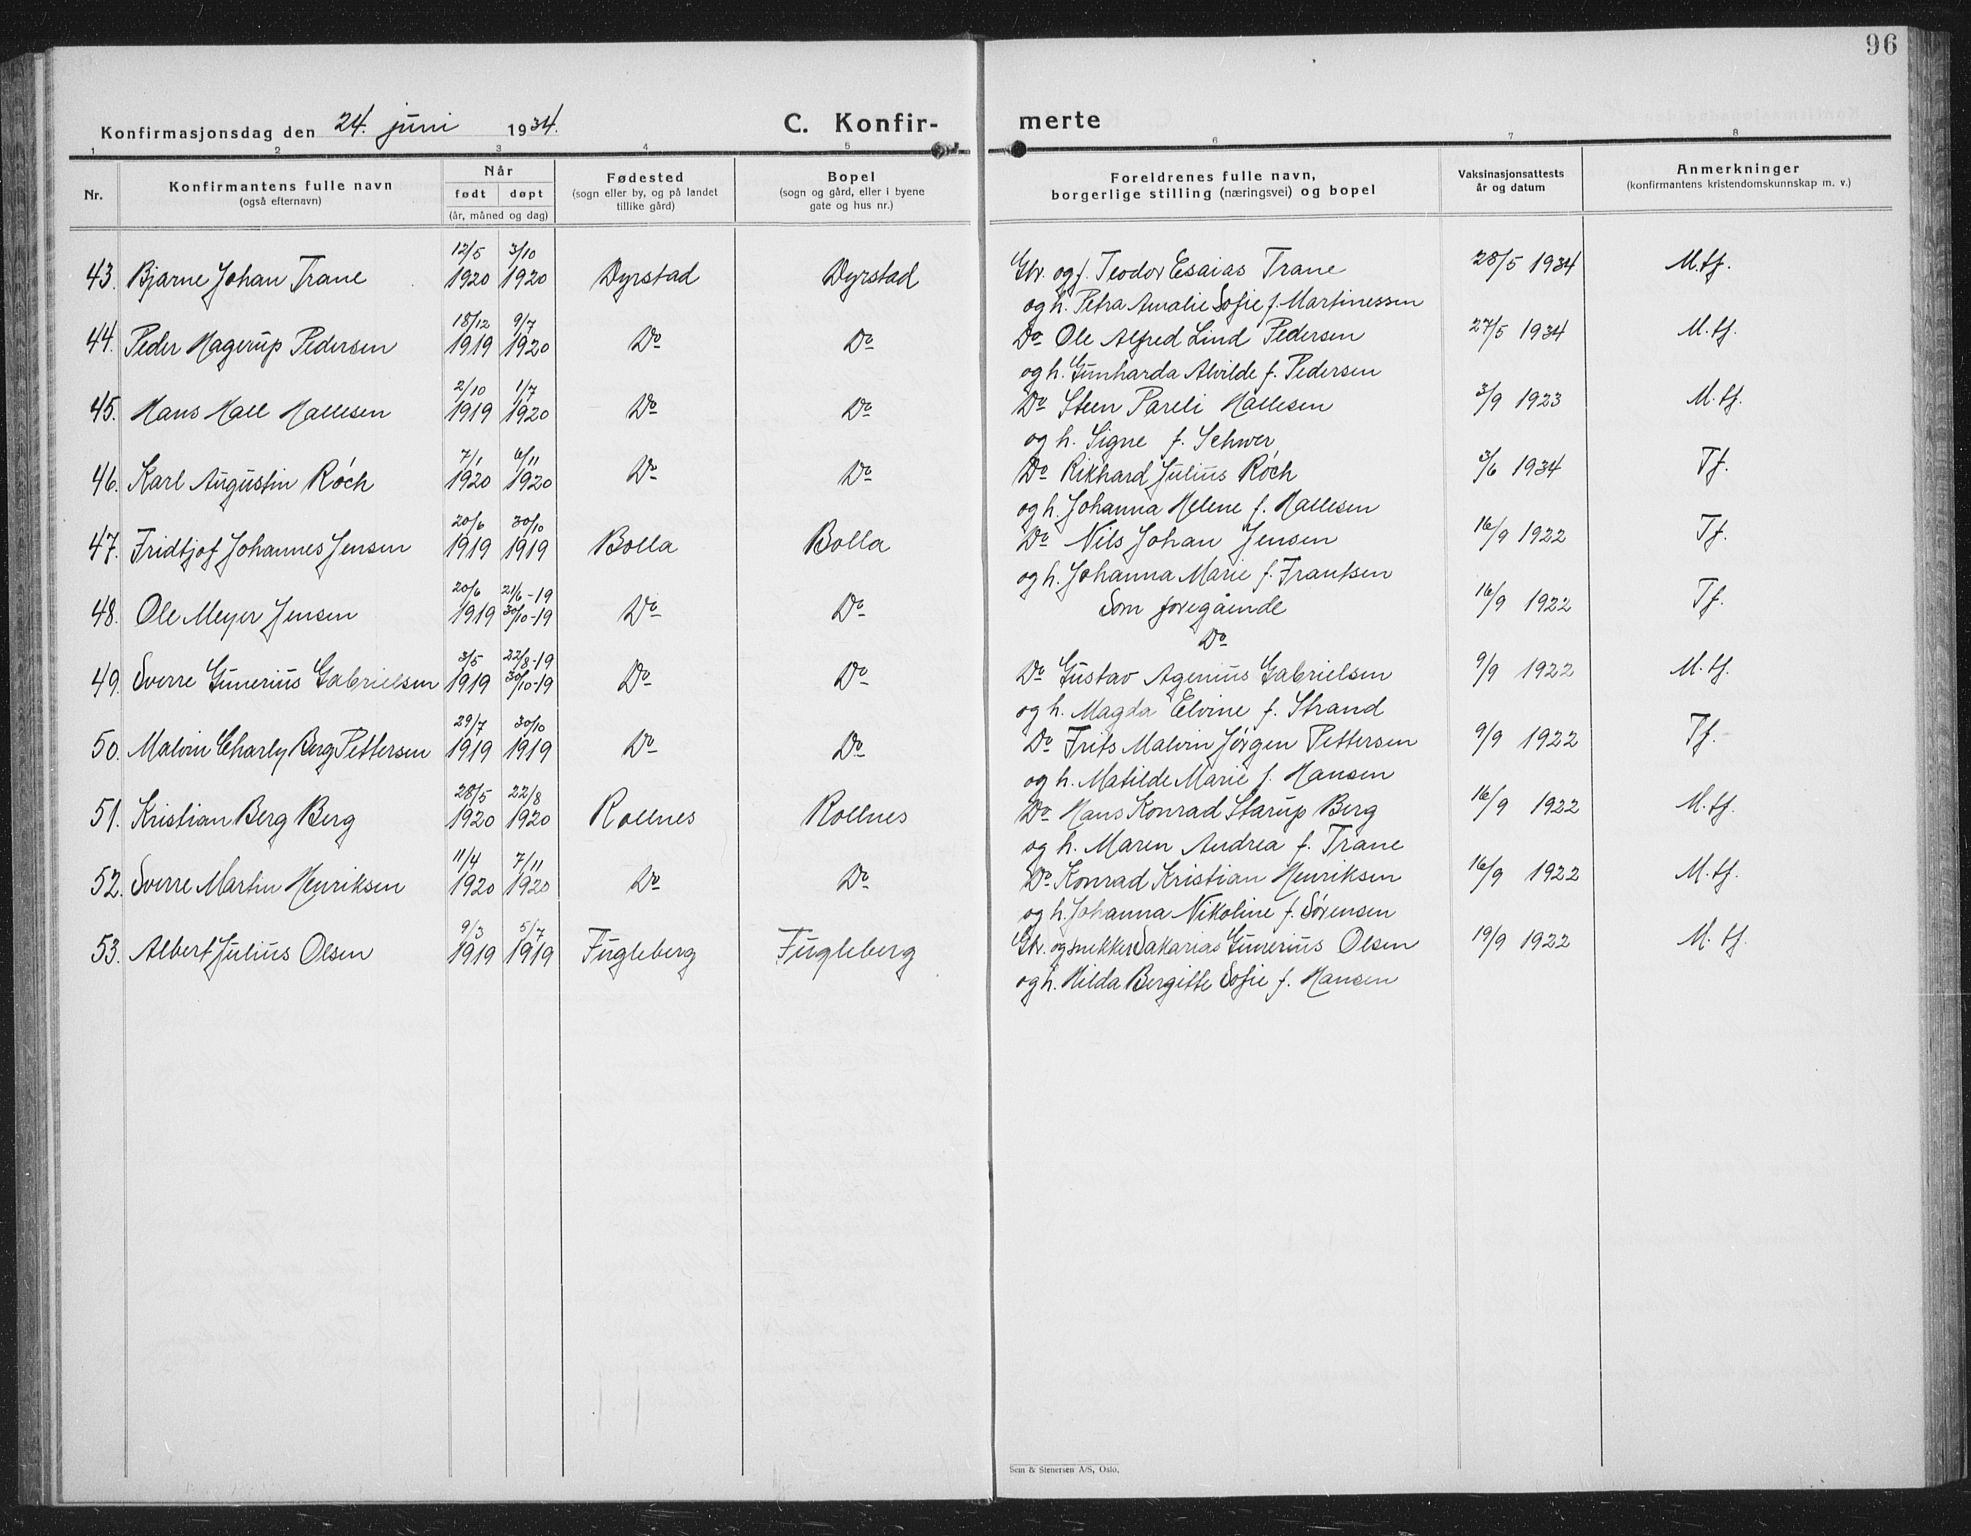 96
Konfirmasjonsdag den 24. juni 1934. C. Konfir- merte
1 2 3 4 5 6 7 8
Nr. Konfirmantens fulle navn (også efternavn) Når født døpt (år, måned og dag) Fødested (sogn eller by, og på landet tillike gård) Bopel (sogn og gård, eller i byene gate og hus nr.) Foreldrenes fulle navn, borgerlige stilling (næringsvei) og bopel Vaksinasjonsattests år og datum Anmerkninger (konfirmantens kristendomskunnskap m. v.)
43. Bjarne Johan Trane 12/5 1920 3/10 1920 Dyrstad Dyrstad Gbr. og f. Teodor Esaias Trane 28/5 1934 M.tf.
og h. Petra Amalie Sofie f. Martinessen
44. Peder Hagerup Pedersen 18/12 1919 9/7 1920 Do Do Do Ole Alfred Lind Pedersen 27/5 1934 M.tf.
og h. Gunharda Alvilde f. Pedersen
45. Hans Hall Hallesen 2/10 1919 1/7 1920 Do Do Do Steen Pareli Hallesen 3/9 1923 M.tf.
og h. Signe f. Schwer
46. Karl Augustin Róch 7/1 1920 6/11 1920 Do Do Do Rikhard Julius Róch 3/6 1934 Tf.
og h. Johanna Helene f. Hallesen
47. Fridtjof Johannes Jensen 20/6 1919 30/10 1919 Bolla Bolla Do Nils Johan Jensen 16/9 1922 Tf.
og h. Johanna Marie f. Frantsen
48. Ole Meyer Jensen 20/6 1919 21/6-19 30/10-19 Do Do Som foregående 16/9 1922 Tf.
Do
49. Sverre Gunerius Gabrielsen 3/5 1919 22/8-19 30/10-19 Do Do Do Gustav Agenius Gabrielsen 9/9 1922 M.tf.
og h. Magda Elvine f. Strand
50. Malvin Charly Berg Pettersen 29/7 1919 30/10 1919 Do Do Do Frits Malvin Jørgen Pettersen 9/9 1922 Tf.
og h. Matilde Marie f. Hansen
51. Kristian Berg Berg 28/5 1920 22/8 1920 Rollnes Rollnes Do Hans Konrad Starup Berg 16/9 1922 M.tf.
og h. Maren Andrea f. Trane
52. Sverre Martin Henriksen 11/4 1920 7/11 1920 Do Do Do Konrad Kristian Henriksen 16/9 1922 M.tf.
og h. Johanna Nikoline f. Sørensen
53. Albert Julius Olsen 9/3 1919 5/7 1919 Fugleberg Fugleberg Gbr. og snekker Sakarias Gunerius Olsen 19/9 1922 M.tf.
og h. Hilda Bergitte Sofie f. Hansen
Sem & Stenersen A/S, Oslo.